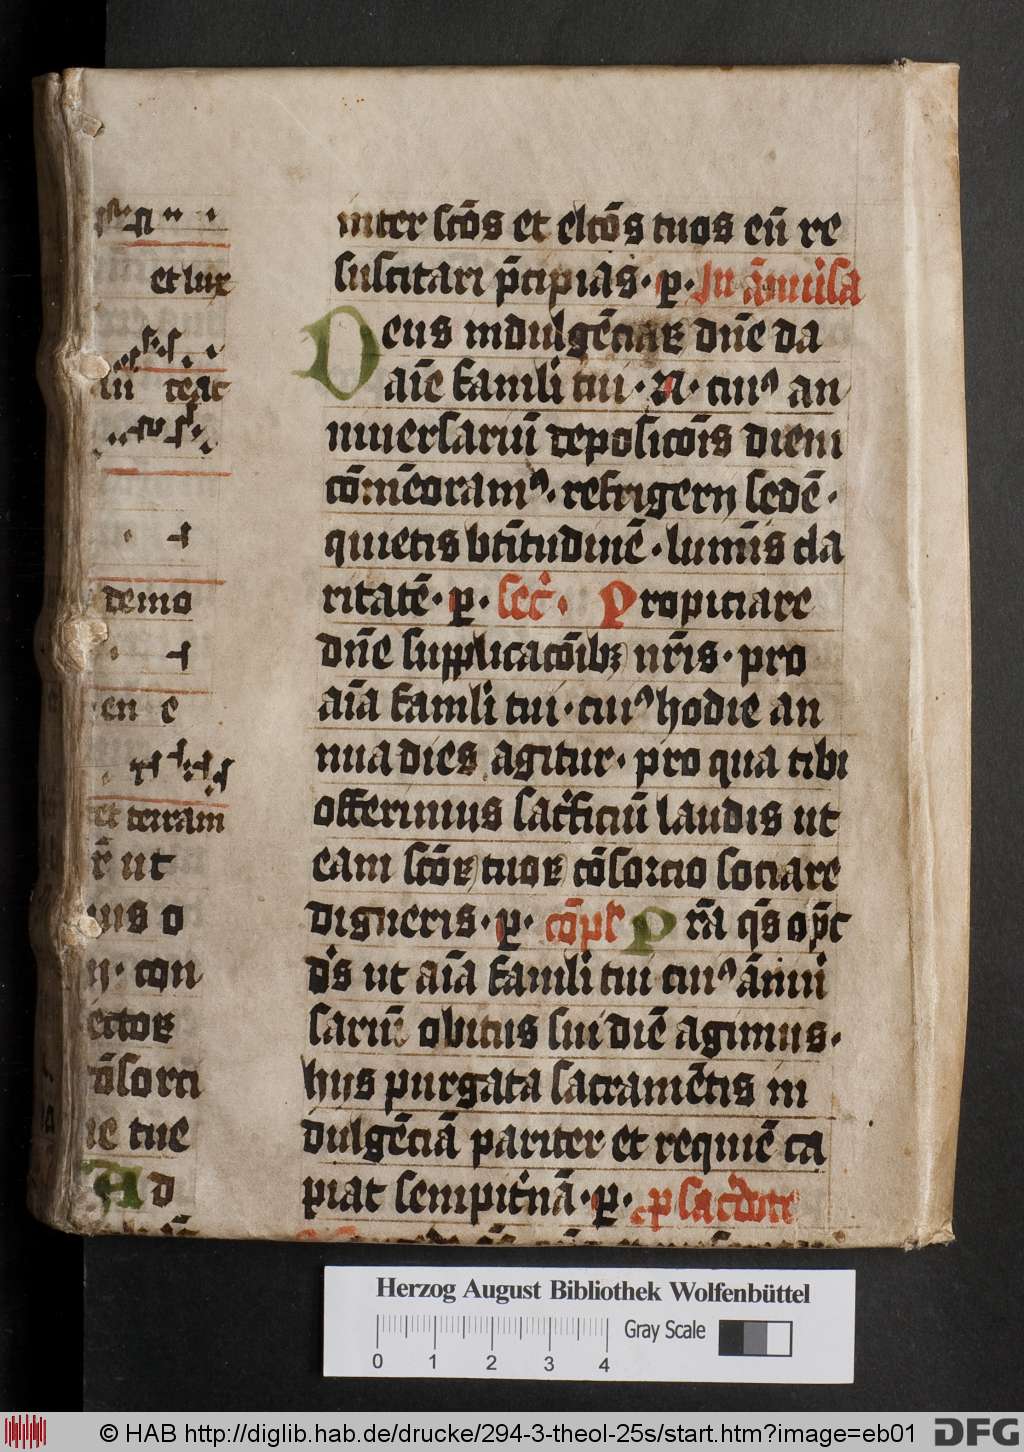 et lux
teat
demo
en e
et terram
r̄ ut
us o
n· con
ectoꝝ
ōsorti
ie tue
Ad
inter scōs et eltōs tuos eū re
suscitari p̄cipias· ꝑ· In āniu̓sa
Deus indulgēciaꝝ dn̄e da
aīe famuli tui· N· cuiꝰ an
niuersariū deposicōis diem
cōmēoramꝰ· refrigerij sedē·
quietis bt̄itudinē· lumīs cla
ritatē· ꝑ· Secr̄· Propiciare
dn̄e supplicacōibꝫ nr̄is· pro
aīa famuli tui· cuiꝰ hodie an
nua dies agitur· pro qua tibi
offerimus sacrificiū laudis ut
eam scōꝝ tuoꝝ cōsorcio sociare
digneris· ꝑ· cōpl Pr̄a qs̄ op̄c
ds̄ ut aīa famuli tui cuiꝰ āniu̓
sariū obitus sui diē agimus·
hijs purgata sacramētis in
dulgēciā pariter et requiē ca
piat sempit̓nā· ꝑ· ꝓ sacerdote
Herzog August Bibliothek Wolfenbüttel
0 1 2 3 4
Gray Scale
© HAB http://diglib.hab.de/drucke/294-3-theol-25s/start.htm?image=eb01
DFG